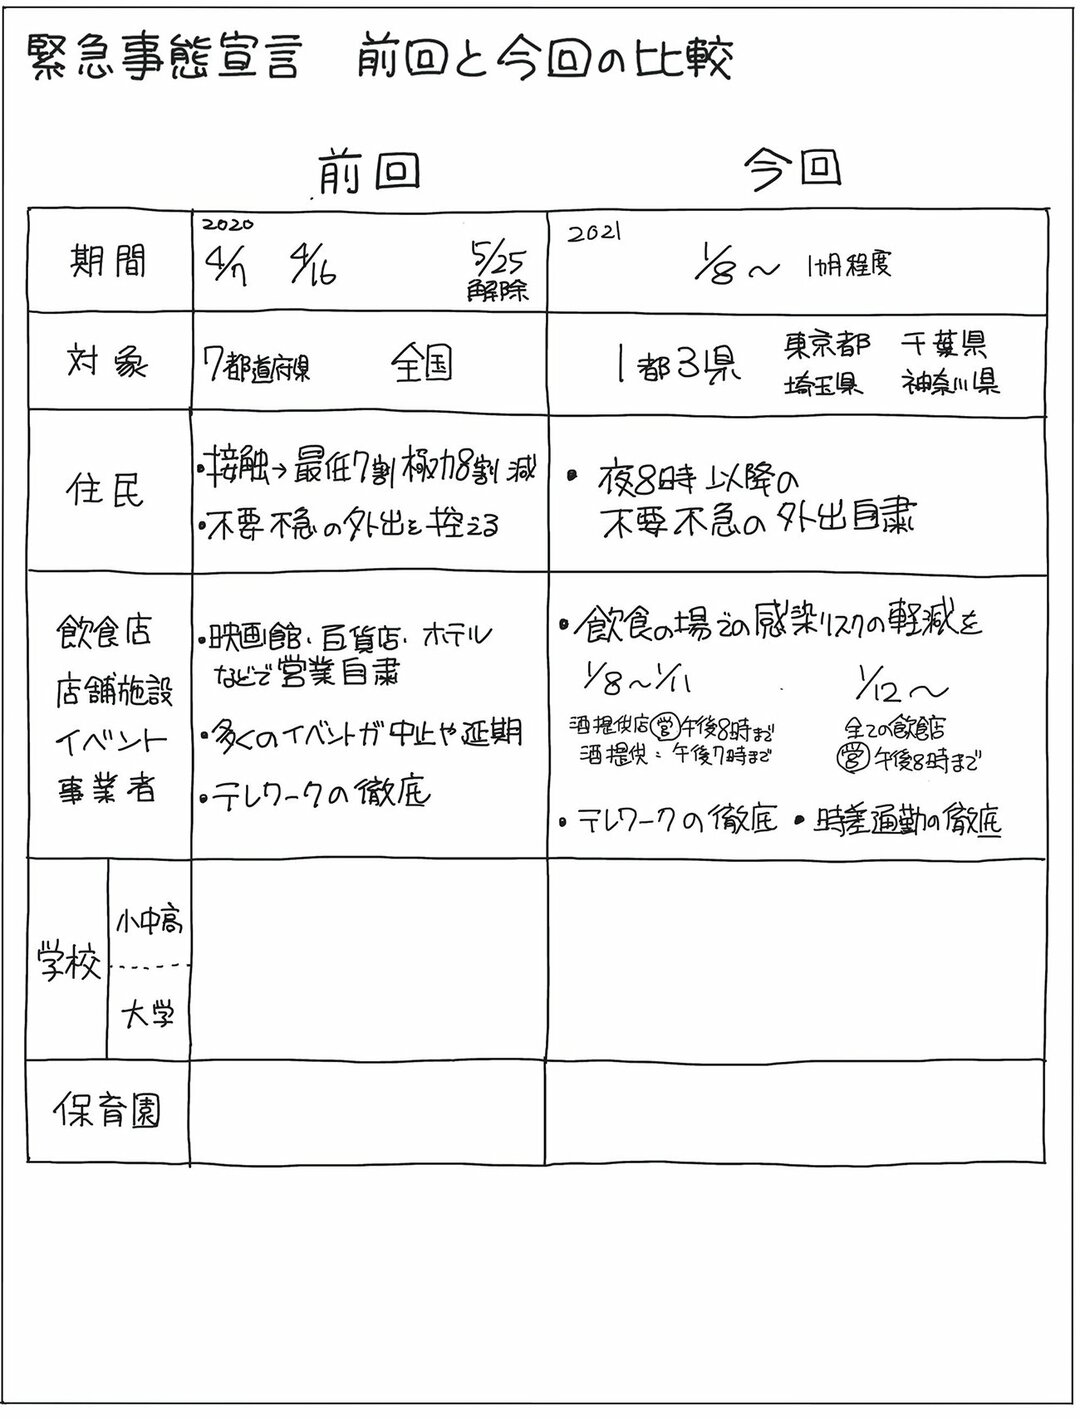 緊急事態宣言 前回と今回の比較
前回 今回
期間
2020
4/7 4/16 5/25
解除
2021
1/8〜 1ヵ月程度
対象
7都道府県 全国
1都3県
東京都 千葉県
埼玉県 神奈川県
住民
・接触→最低7割極力8割減
・不要不急の外出を控える
・夜8時以降の
不要不急の外出自粛
飲食店
店舗施設
イベント
事業者
・映画館・百貨店・ホテル
などで営業自粛
・多くのイベントが中止や延期
・テレワークの徹底
・飲食の場での感染リスクの軽減を
1/8〜1/11 1/12〜
酒提供店営午後8時まで
酒提供:午後7時まで
全ての飲食店
営午後8時まで
・テレワークの徹底 ・時差通勤の徹底
学校
小中高
大学
保育園